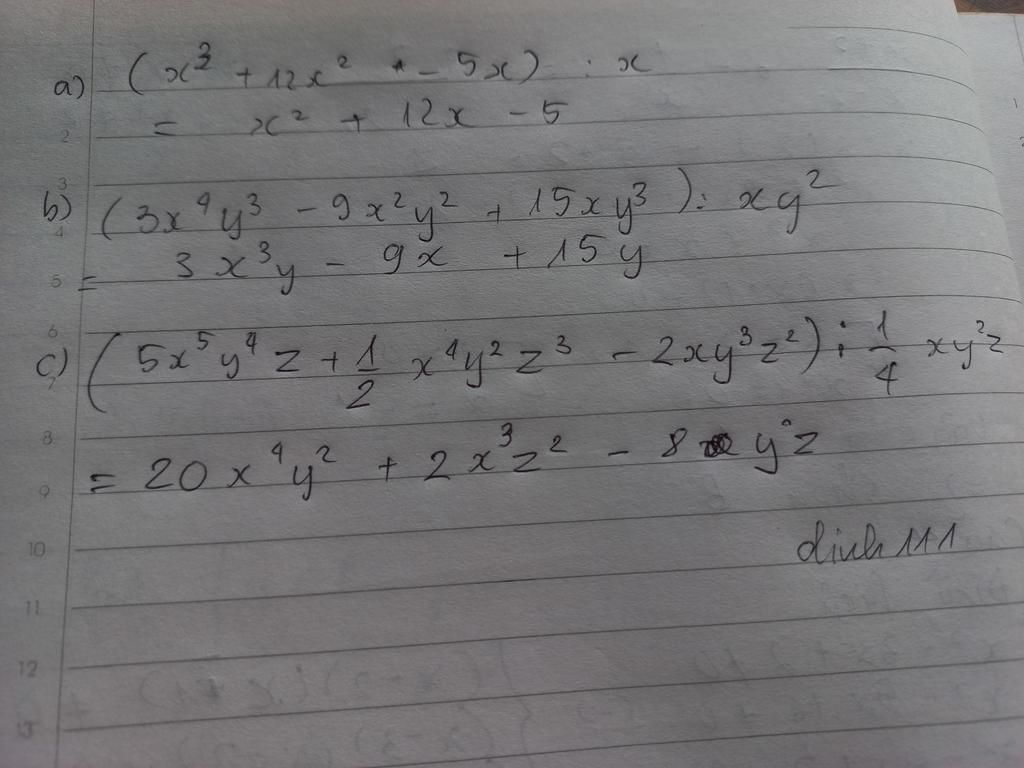 a) (x³ + 12x² - 5x) : x
= x² + 12x - 5
b) (3x⁴y³ - 9x²y² + 15xy³) : xy²
= 3x³y - 9x + 15y
c) (5x⁵y⁴z + 1/2 x⁴y²z³ - 2xy³z²) : 1/4 xy²z
= 20x⁴y² + 2x³z² - 8yz
dinh 111
2
3
4
5
6
7
8
9
10
11
12
13